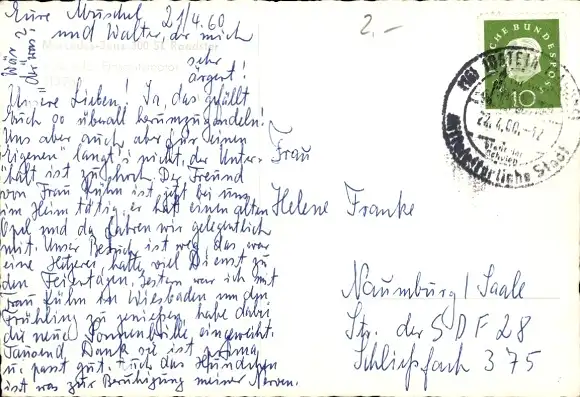 Eure Muschel 21/4.60
und Walter, der mich
sehr
ärgert!
Wär
was?
Unsere Lieben! Ja, das gefällt
Euch so überall herumzugondeln!
Uns aber auch, aber für "einen
Eigenen" langt's nicht, der Unter-
halt ist zu hoch. Der Freund
von Frau Kühn ist jetzt bei uns
im Heim tätig, er hat einen alten
Opel und da fahren wir gelegentlich
mit. Unser Besuch ist weg, das war
eine Hetzerei, hatte viel Dienst zu
den Feiertagen. Gestern war ich mit
Frau Kühn in Wiesbaden um den
Frühling zu genießen, habe dabei
die neue Sonnenbrille eingeweiht.
Tausend Dank, sie ist prima
u. passt gut. Auch das Hündchen
ist was zur Beruhigung meiner Nerven.
2,-
CHE BUNDESPOST
10
(16) IDSTEIN
22.4.60.-12
Mittelalterliche Stadt
Frau
Helene Franke
Naumburg/Saale
Str. der SDF 28
Schließfach 375